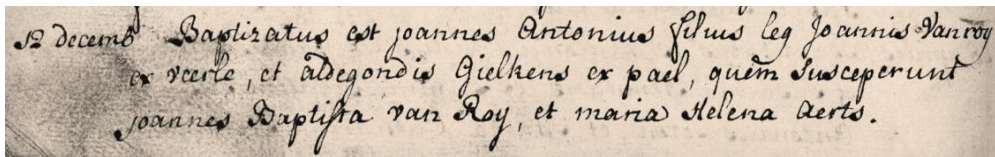 12 decemb Baptizatus est joannes Antonius filius leg Joannis Van roy
ex veerle, et aldegondis Gielkens ex pael, quem Susceperunt
joannes Baptista van Roy, et maria Helena Aerts.